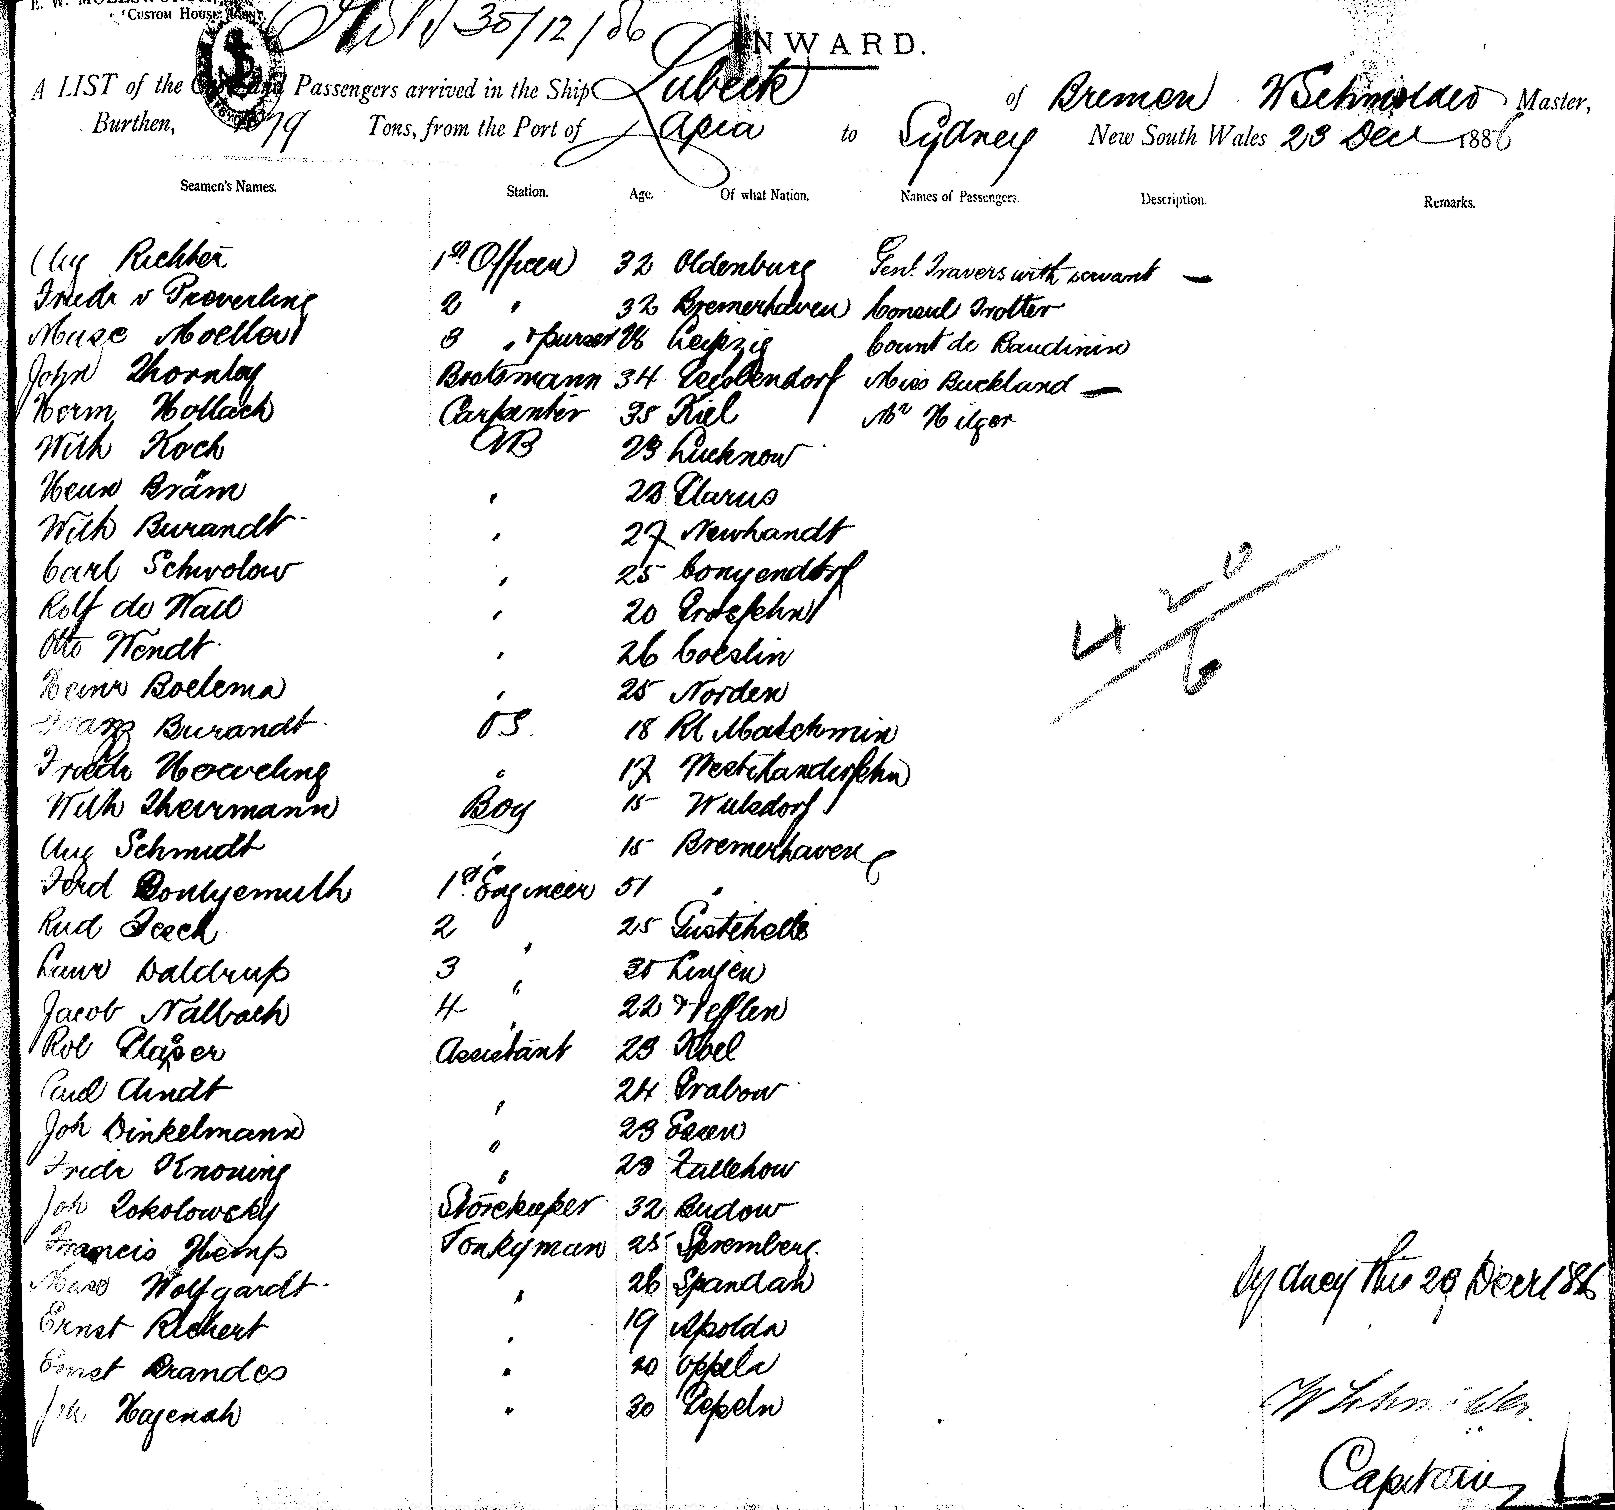 CUSTOM HOUSE
30/12/86
INWARD.
A LIST of the Crew and Passengers arrived in the Ship Lübeck of Bremen W Schmölder Master,
Burthen, Tons, from the Port of Apia to Sydney New South Wales 23 Dec 1886
Seamen's Names. Station. Age. Of what Nation. Names of Passengers. Description. Remarks.
Aug Richter 1st Officer 32 Oldenburg Genl. Travers with servant —
Friedr v 2 " 32 Bremerhaven Consul Trotter
Moeller 3 " & purser 26 Leipzig Count de Baudinin
John Thornley Bootsmann 34 Miss Buckland —
Herm Hollach Carpenter 35 Kiel Mr Hilger
Wilh Koch AB 23 Lucknow
Heinr Bräm " 23 Glarus
Wilh Burandt " 27 Newhandt
Carl Schwolow " 25
Rolf de Wall " 20 Grosfehn
Otto Wendt " 26 Coeslin
Heinr Boelema " 25 Norden
Franz Burandt OS. 18 Kl Matchmin
Friedr Hoeveling " 17
Wilh Theirmann Boy 15 Wulsdorf
Aug Schmidt " 15 Bremerhaven
Ferd 1st Engineer 51 "
Rud 2 " 25
Laur Daldrup 3 " 30 Lingen
Jacob Nalbach 4 " 22
Rob Glaser Assistant 23
Paul Arndt " 24 Grabow
Joh Dinkelmann " 23 Essen
Friedr Knoning " 23
Joh Zokolowsky Storekeeper 32 Budow
Francis Hemp Donkyman 25 Spremberg
Wolfgardt " 26 Spandau
Ernst Richert " 19 Apolda
Ernst Brandes " 20 Oppeln
Joh Hagenah " 30
4 20
6
Sydney this 29 Decr 186
W Schmölder
Capitain